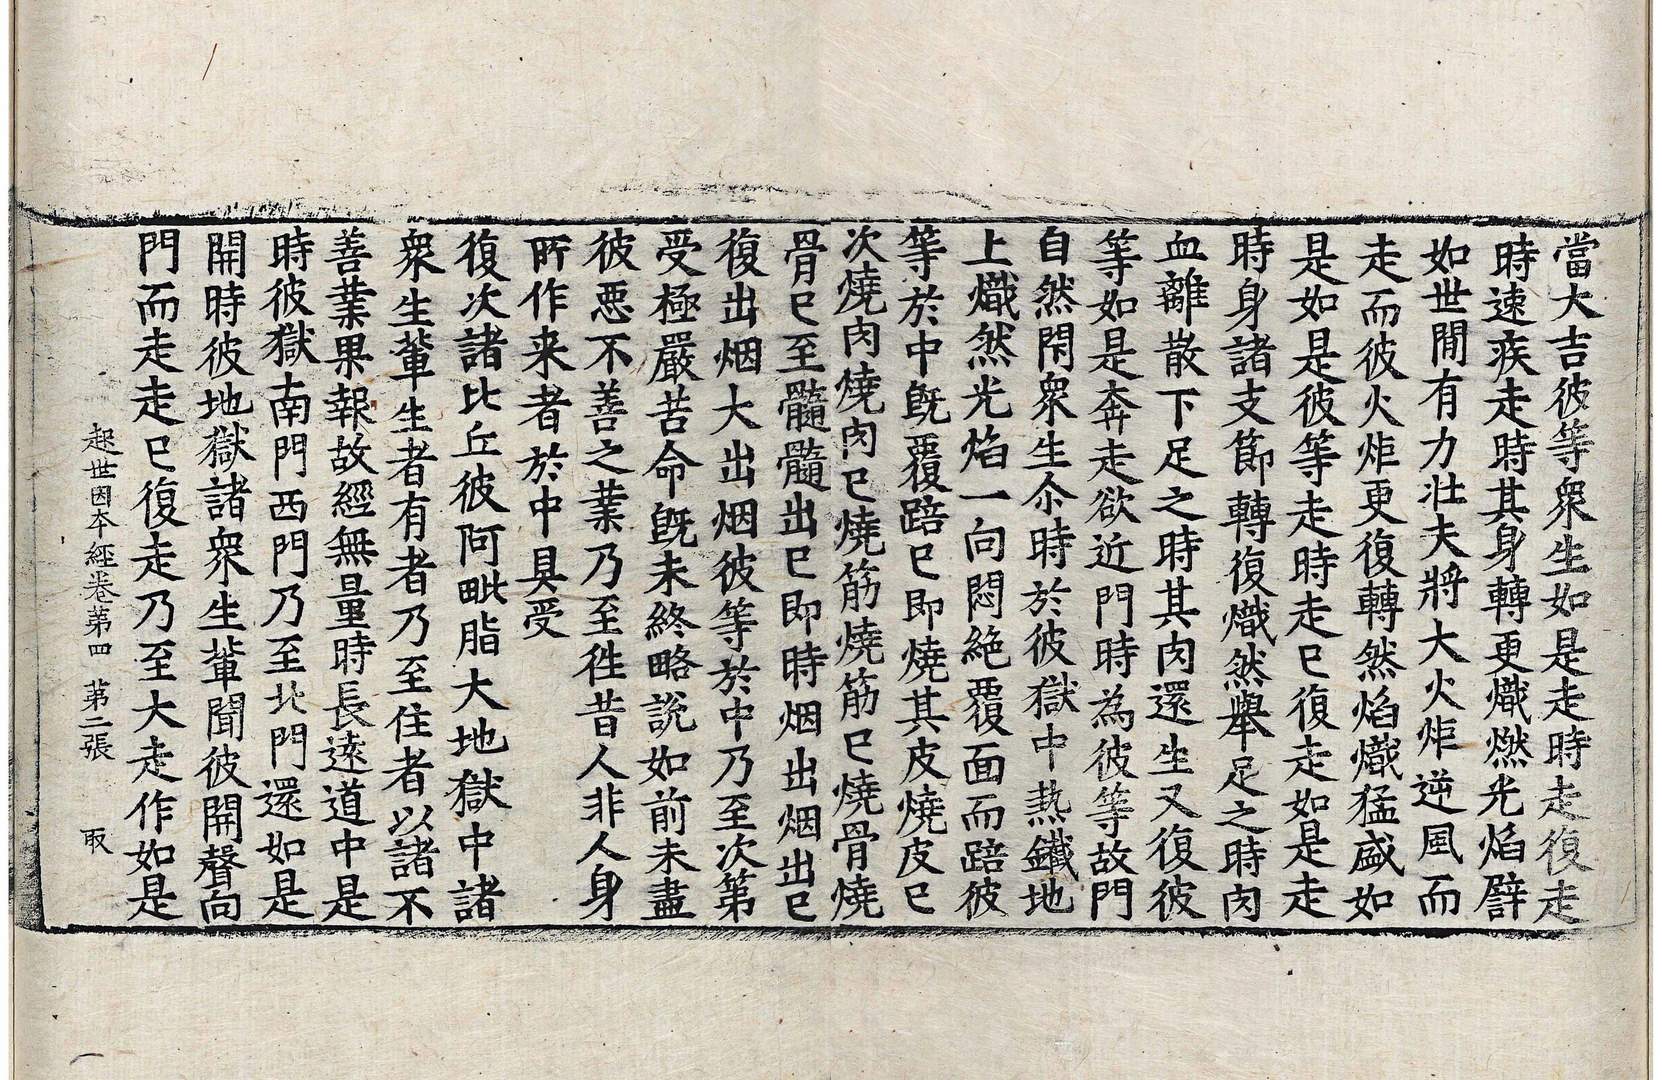 當大吉彼等衆生如是走時走復走
時速疾走時其身轉更熾燃光焰譬
如世間有力壯夫將大火炬逆風而
走而彼火炬更復轉然焰熾猛盛如
是如是彼等走時走已復走如是走
時身諸支節轉復熾然舉足之時肉
血離散下足之時其肉還生又復彼
等如是奔走欲近門時為彼等故門
自然閇衆生尒時於彼獄中熱鐵地
上熾然光焰一向悶絶覆面而踣彼
等於中旣覆踣已即燒其皮燒皮已
次燒肉燒肉已燒筋燒筋已燒骨燒
骨已至髓髓出已即時烟出烟出已
復出烟大出烟彼等於中乃至次第
受極嚴苦命旣未終略說如前未盡
彼惡不善之業乃至徃昔人非人身
所作来者於中具受
復次諸比丘彼阿毗脂大地獄中諸
衆生輩生者有者乃至住者以諸不
善業果報故經無量時長遠道中是
時彼獄南門西門乃至北門還如是
開時彼地獄諸衆生輩聞彼開聲向
門而走走已復走乃至大走作如是
起世因本經卷第四 第二張 取